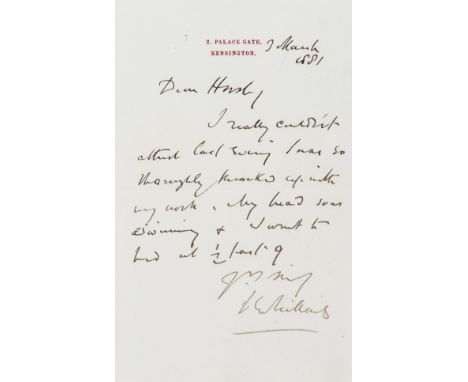 2. PALACE GATE,
KENSINGTON.
3 March
1881
Dear Horsley
I really couldn't
attend last evening I was so
thoroughly knocked up with
my work. My head was
swimming & I went to
bed at ½ past 9
J E Millais